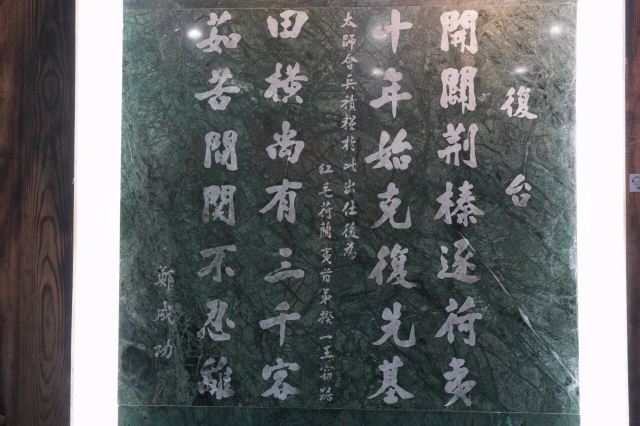 復台
開闢荆榛逐荷夷
十年始克復先基
太師會兵積糧於此出仕後為
紅毛荷蘭夷酋弟揆一王竊踞
田橫尚有三千客
茹苦間関不忍離
鄭成功